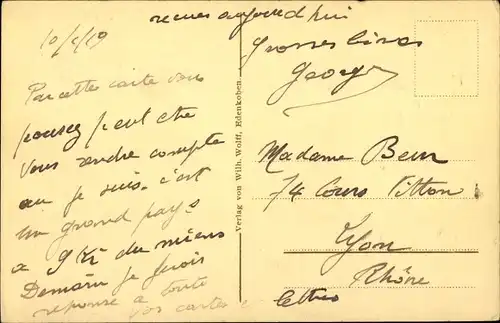 10/5/19
Par cette carte vous
pouvez peut etre
vous rendre compte
ou je suis. c'est
un grand pays
a 9 K du miens
Demain je ferais
reponse a toute
vos cartes e lettres
recues aujourd hui
Grosses bises
Georges
Verlag von Wilh. Wolff, Edenkoben.
Madame Beur
74 Cours Vitton
Lyon
Rhône